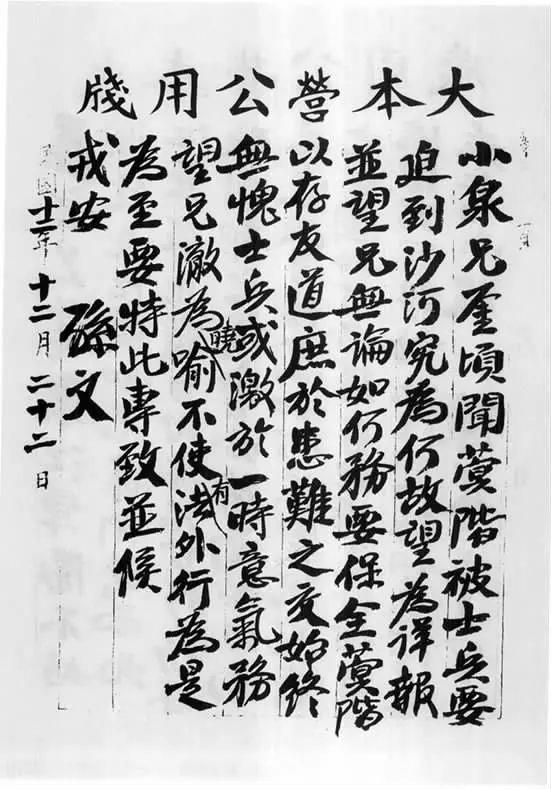 大本營公用牋
小泉兄鑒頃聞蓂階被士兵要
迫到沙河究為何故望為詳報
並望兄無論如何務要保全蓂階
以存友道庶於患難之交始終
無愧士兵或激於一時意氣務
望兄澈為曉喻不使有法外行為是
為至要特此專致並候
戎安 孫文
十二年十二月二十二日